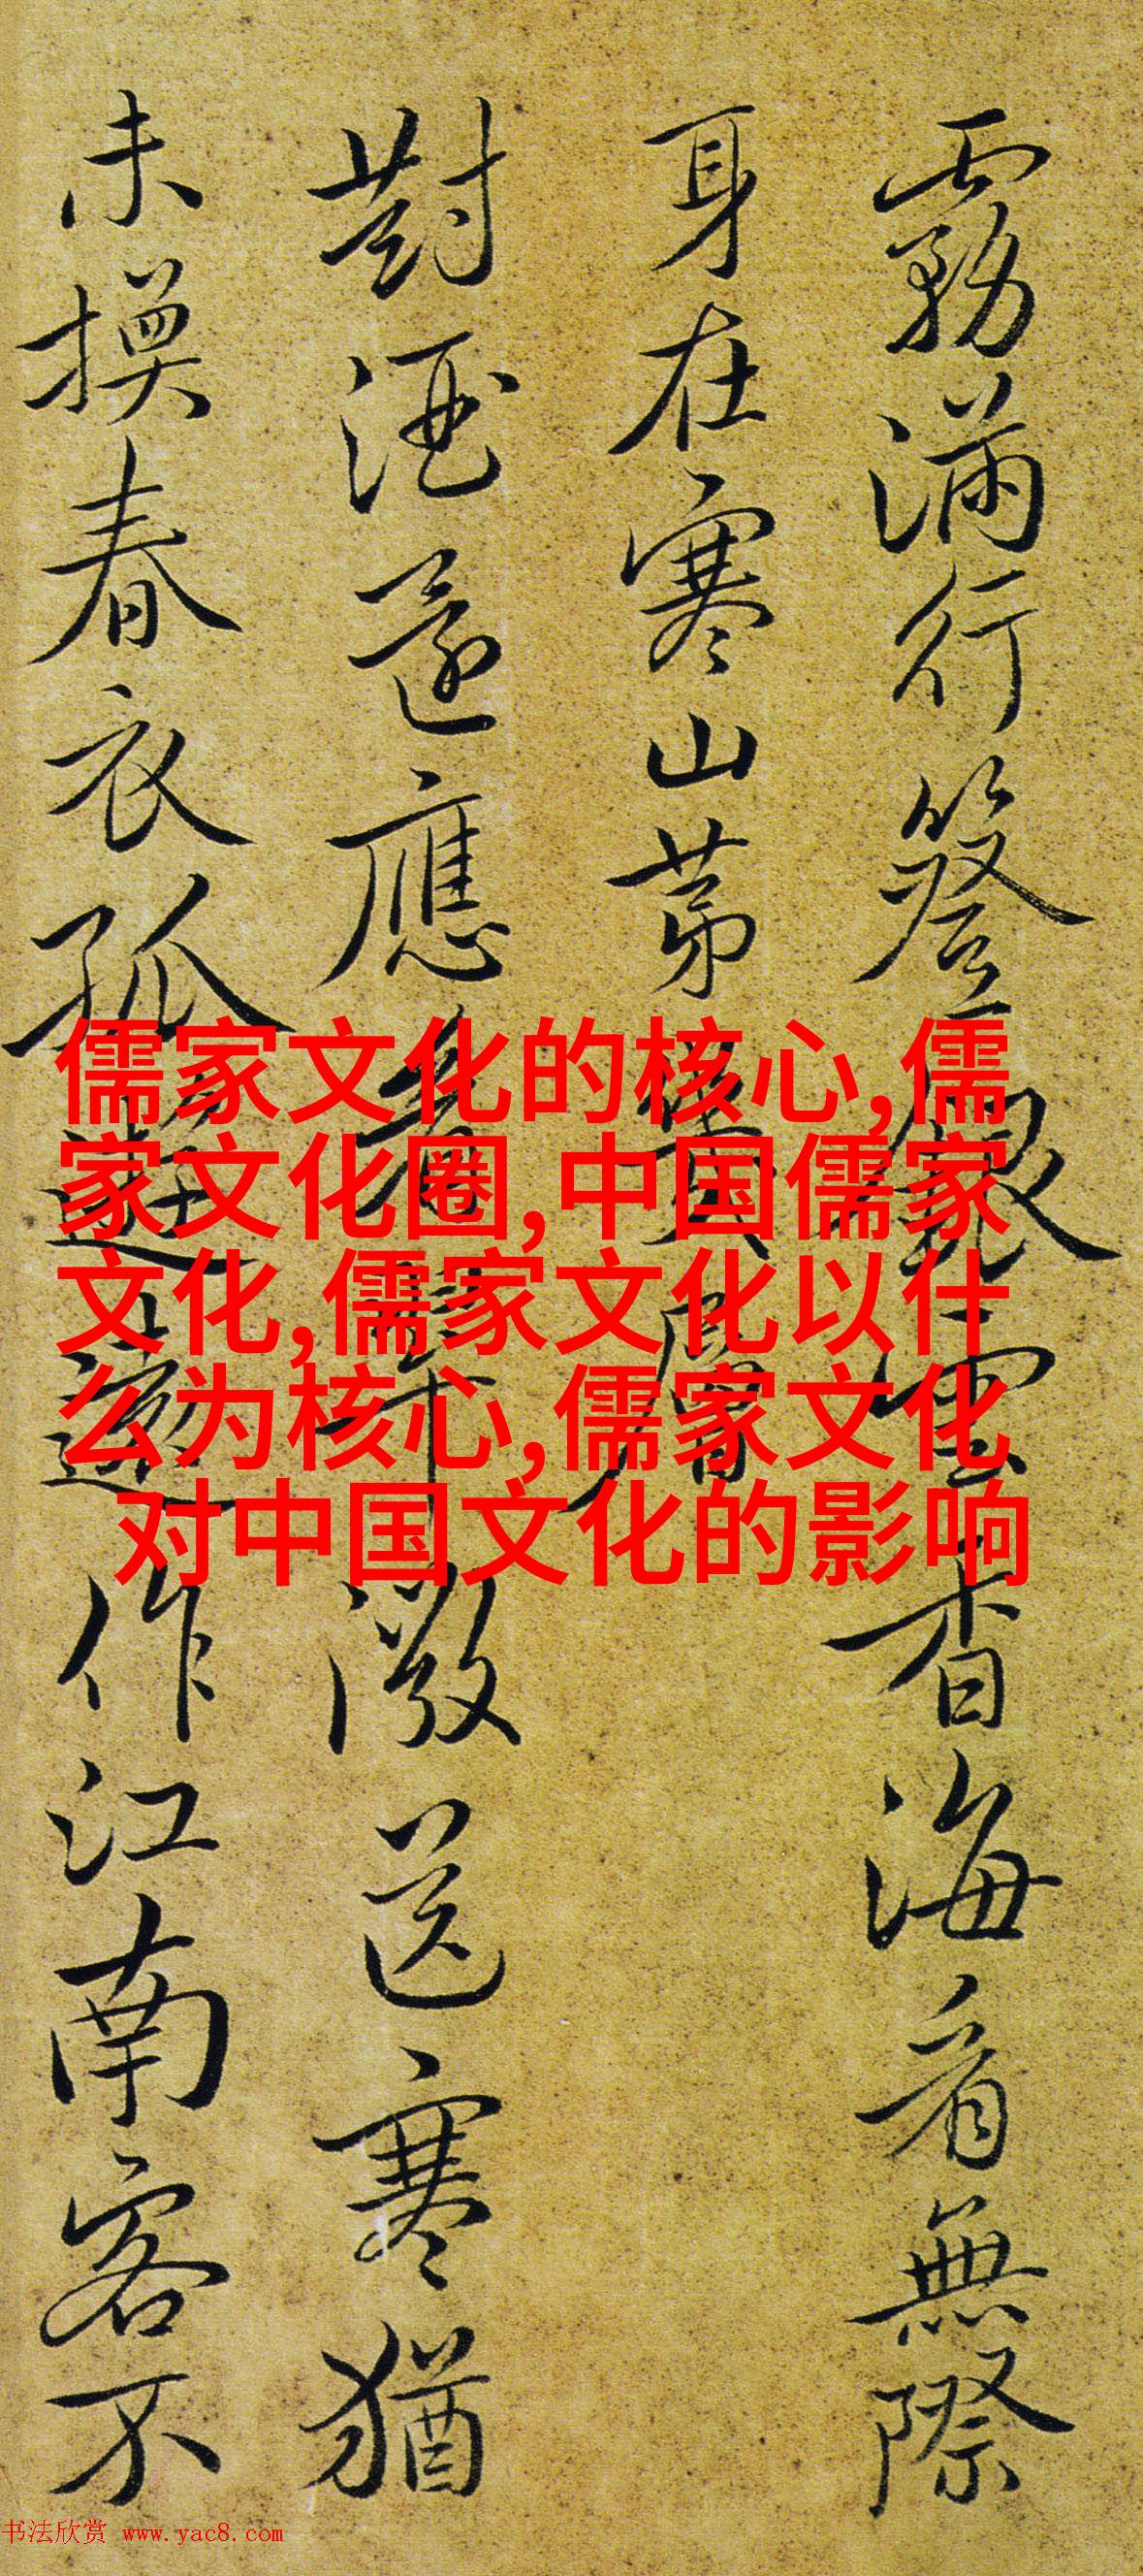 霧滿行簦 杳海看無際
身在寒山第 層
對酒還應 送寒猶
未換春衣孤 作江南客不
儒家文化的核心,儒
家文化圈,中国儒家
文化,儒家文化以什
么为核心,儒家文化
对中国文化的影响
书法欣赏 www.yac8.com